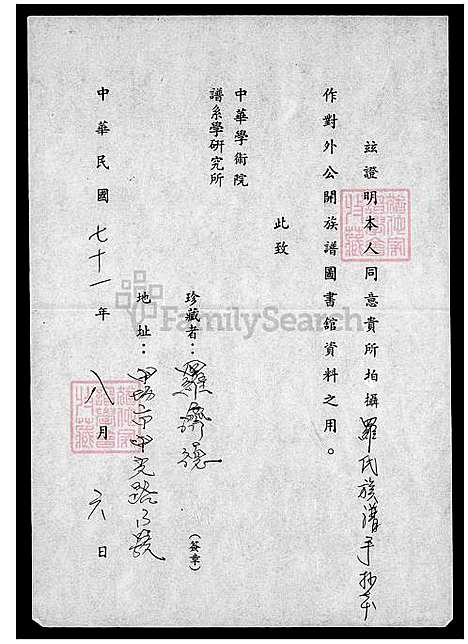 茲證明本人同意貴所拍攝羅氏族譜手抄本
作對外公開族譜圖書館資料之用。
此致
中華學術院
譜系學研究所
珍藏者：羅濟德（簽章）
地址：中路
中華民國七十一年八月六日
FamilySearch